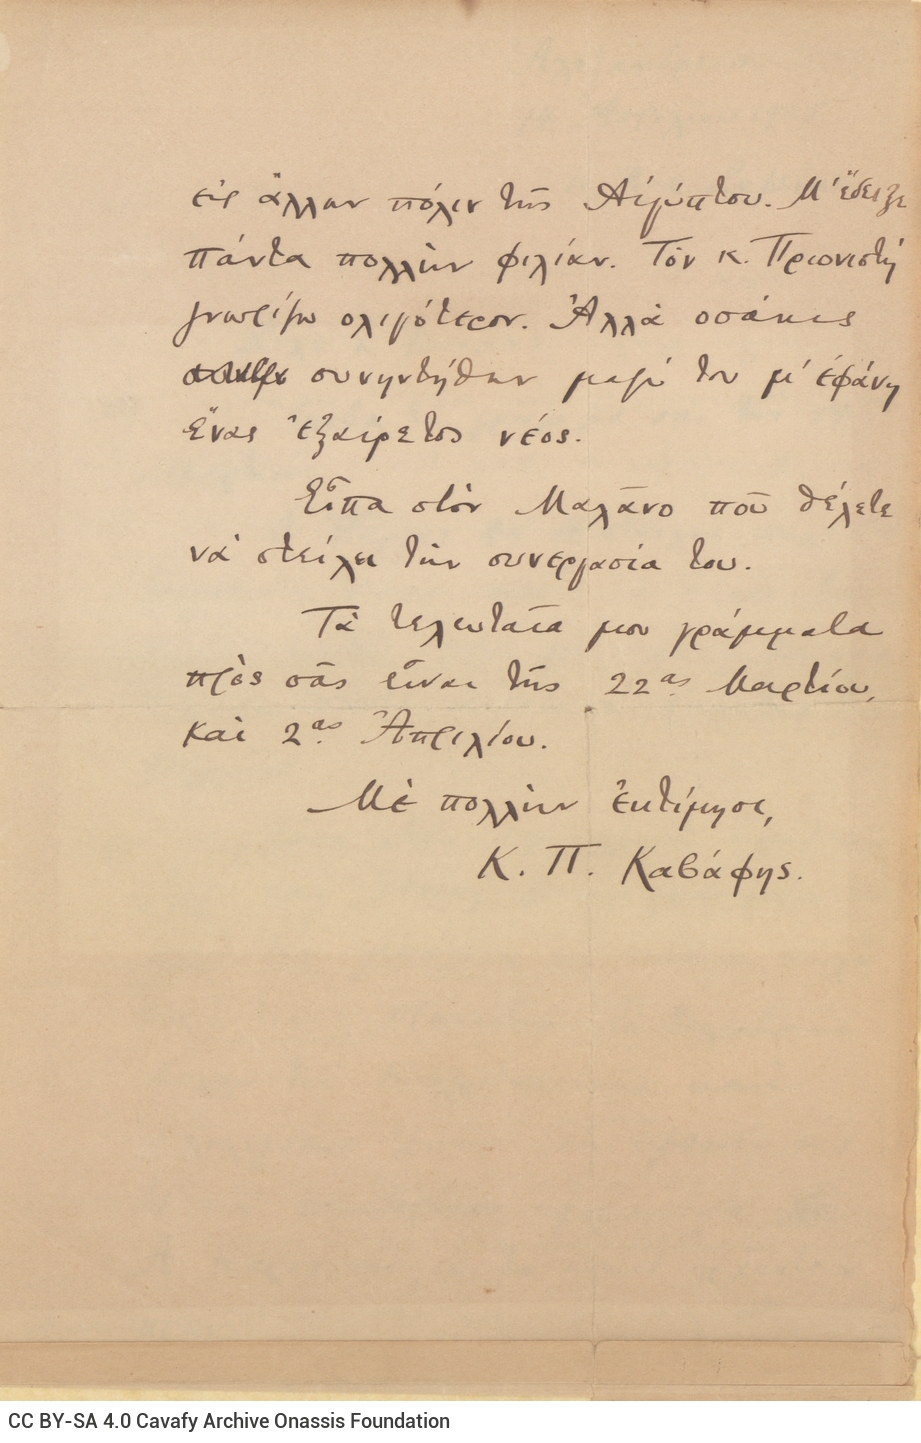 εἰς ἄλλην πόλιν τῆς Αἰγύπτου. Μ' ἔδειξε
πάντα πολλὴν φιλίαν. Τὸν κ. Πριονιστὴ
γνωρίζω ολιγότερον. Ἀλλὰ οσάκις
συνηντήθην μαζύ του μ' ἐφάνη
ἕνας ἐξαίρετος νέος.
Εἶπα στὸν Μαλάνο ποῦ θέλετε
νὰ στείλει τὴν συνεργασία του.
Τὰ τελευταῖα μου γράμματα
πρὸς σᾶς εἶναι τῆς 22ας Μαρτίου,
καὶ 2ας Ἀπριλίου.
Μὲ πολλὴν ἐκτίμησι,
Κ. Π. Καβάφης.
CC BY-SA 4.0 Cavafy Archive Onassis Foundation